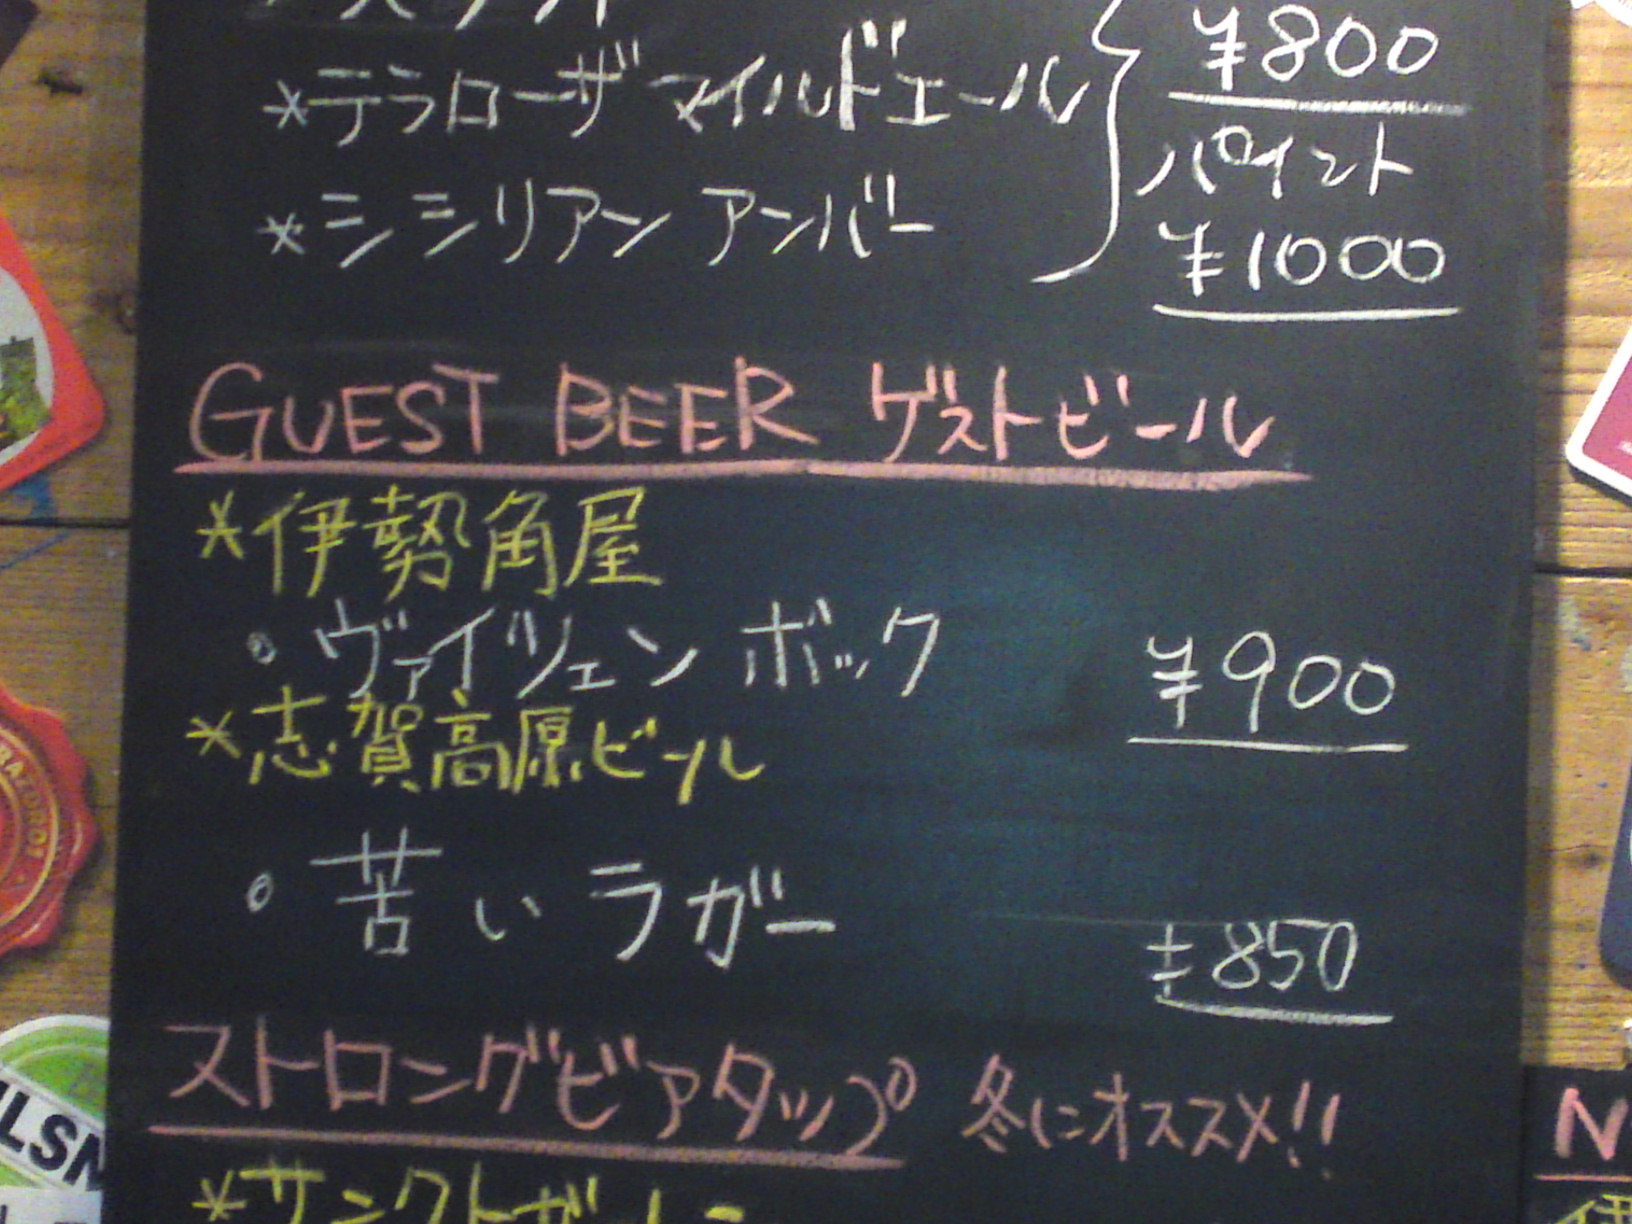 ¥800
*テラローザ マイルドエール
パイント
*シシリアン アンバー
¥1000
GUEST BEER ゲストビール
*伊勢角屋
・ヴァイツェン ボック ¥900
*志賀高原ビール
・苦いラガー ¥850
ストロングビアタップ 冬にオススメ!!
N
LSN